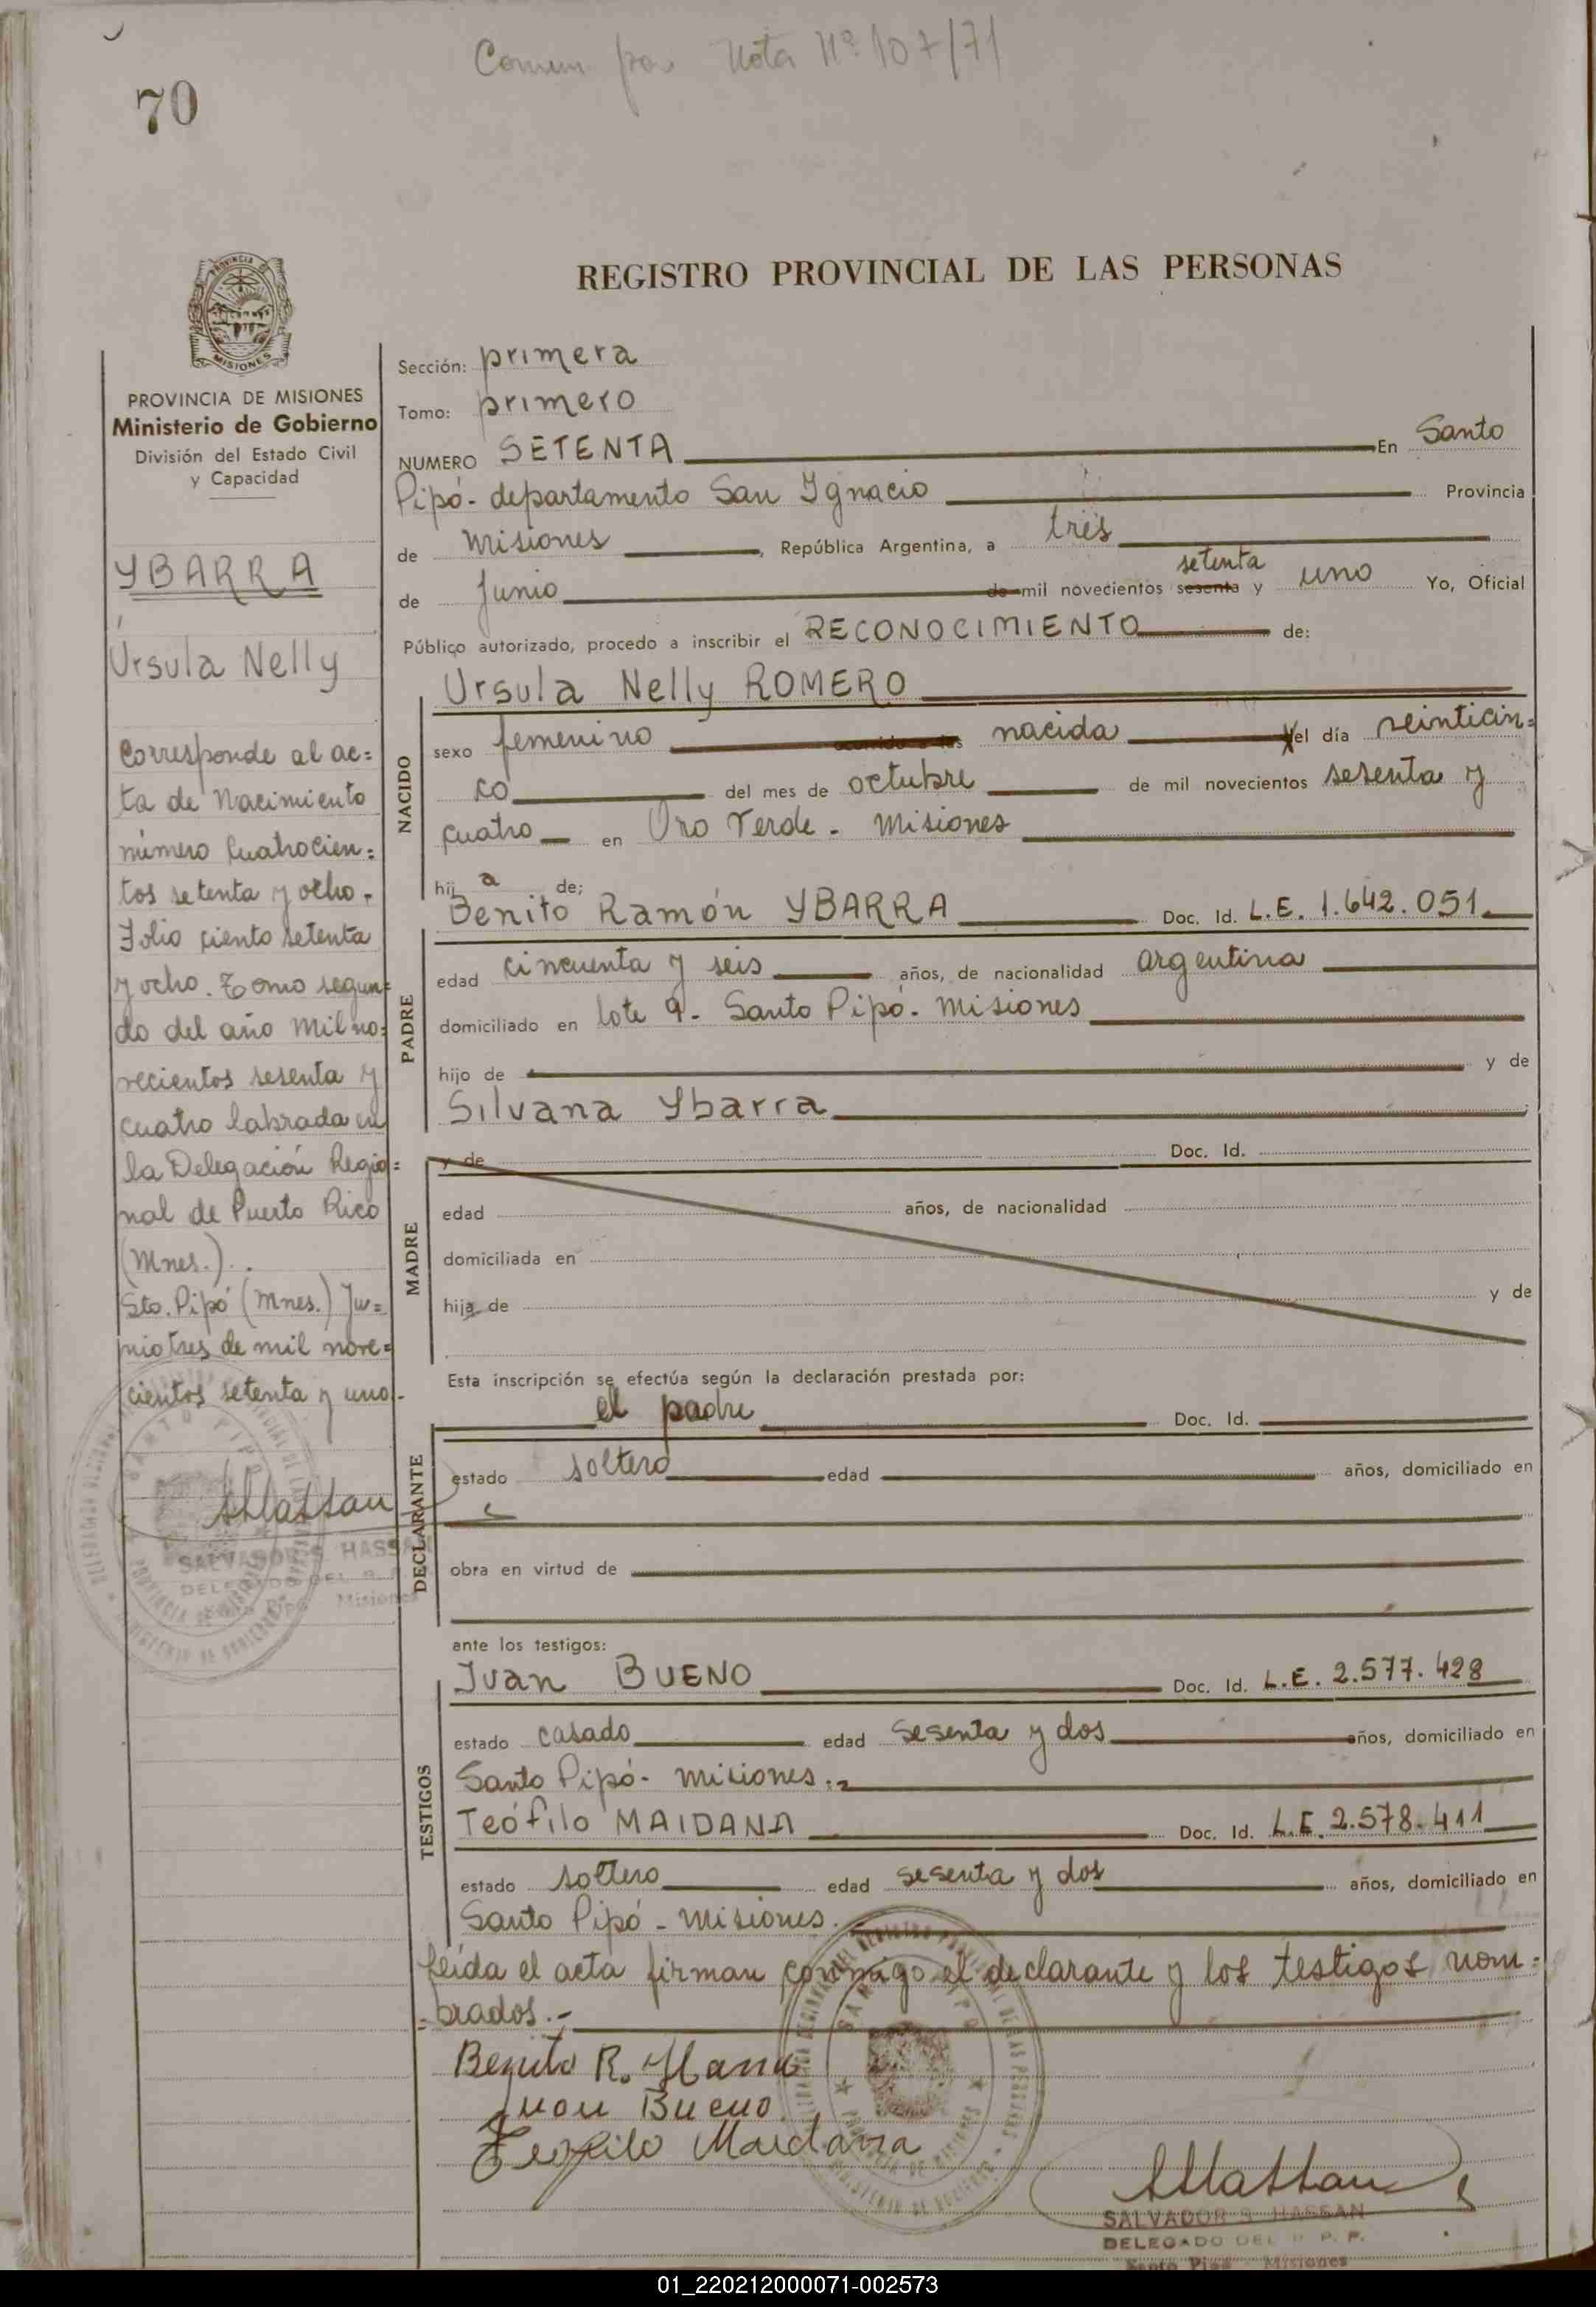 Comun. por Nota Nº 107/71
70
REGISTRO PROVINCIAL DE LAS PERSONAS
PROVINCIA DE MISIONES
Ministerio de Gobierno
División del Estado Civil
y Capacidad
YBARRA
Ursula Nelly
Corresponde al ac=
ta de Nacimiento
número Cuatrocien=
tos setenta y ocho.
Folio ciento setenta
y ocho. Tomo segun=
do del año mil no=
vecientos sesenta y
cuatro labrada en
la Delegación Regio=
nal de Puerto Rico
(Mnes.)..
Sto. Pipó (Mnes.) Ju=
nio tres de mil nove=
cientos setenta y uno.-
SALVADOR S. HASSAN
DELEGADO DEL R. P. P.
Santo Pipó Misiones
Sección: primera
Tomo: primero
NUMERO SETENTA En Santo
Pipó- departamento San Ygnacio Provincia
de Misiones, República Argentina, a tres
setenta
de Junio de mil novecientos sesenta y uno Yo, Oficial
Público autorizado, procedo a inscribir el RECONOCIMIENTO de:
NACIDO
Ursula Nelly ROMERO
sexo femenino ocurrido a las nacida y el día veinticin=
co del mes de octubre de mil novecientos sesenta y
cuatro en Oro Verde - Misiones
hij a de;
PADRE
Benito Ramón YBARRA Doc. Id. L.E. 1.642.051.
edad cincuenta y seis años, de nacionalidad argentina
domiciliado en lote 9- Santo Pipó- Misiones
hijo de y de
Silvana Ybarra
MADRE
y de Doc. Id.
edad años, de nacionalidad
domiciliada en
hija de y de
Esta inscripción se efectúa según la declaración prestada por:
DECLARANTE
el padre Doc. Id.
estado soltero edad años, domiciliado en
obra en virtud de
ante los testigos:
TESTIGOS
Juan BUENO Doc. Id. L.E. 2.577.428
estado casado edad sesenta y dos años, domiciliado en
Santo Pipó- Misiones.=
Teófilo MAIDANA Doc. Id. L.E. 2.578.411
estado soltero edad sesenta y dos años, domiciliado en
Santo Pipó - Misiones.
Leída el acta firman conmigo el declarante y los testigos nom=
=brados.-
Benito R. Ybarra
Juan Bueno
Teofilo Maidana
SALVADOR S. HASSAN
DELEGADO DEL R. P. P.
Santo Pipó - Misiones
01_220212000071-002573